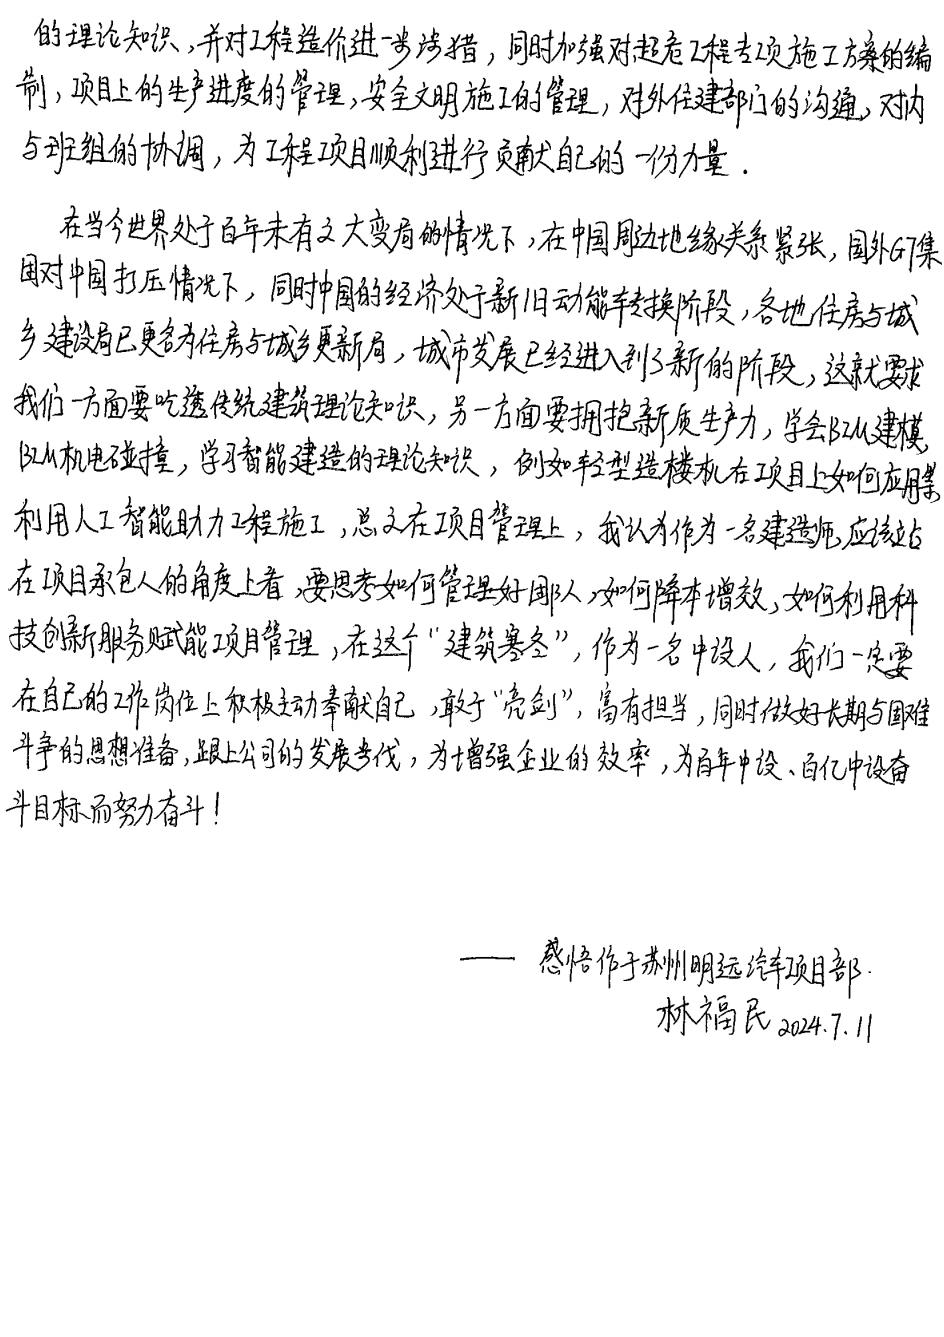 的理论知识,并对工程造价进一步涉猎,同时加强对超危工程专项施工方案的编
制,项目上的生产进度的管理,安全文明施工的管理,对外住建部门的沟通,对内
与班组的协调,为工程项目顺利进行贡献自己的一份力量.
在当今世界处于百年未有之大变局的情况下,在中国周边地缘关系紧张,国外G7集
团对中国打压情况下,同时中国的经济处于新旧动能转换阶段,各地住房与城
乡建设局已更名为住房与城乡更新局,城市发展已经进入到了新的阶段,这就要求
我们一方面要吃透传统建筑理论知识,另一方面要拥抱新质生产力,学会BIM建模,
BIM机电碰撞,学习智能建造的理论知识,例如轻型造楼机在项目上如何应用等
利用人工智能助力工程施工,总之在项目管理上,我认为作为一名建造师,应该站
在项目承包人的角度上看,要思考如何管理好团队,如何降本增效,如何利用科
技创新服务赋能项目管理,在这个"建筑寒冬",作为一名中设人,我们一定要
在自己的工作岗位上积极主动奉献自己,敢于"亮剑",富有担当,同时做好长期与困难
斗争的思想准备,跟上公司的发展步伐,为增强企业的效率,为百年中设、百亿中设奋
斗目标而努力奋斗!
—— 感悟作于苏州明远汽车项目部.
林福民 2024.7.11